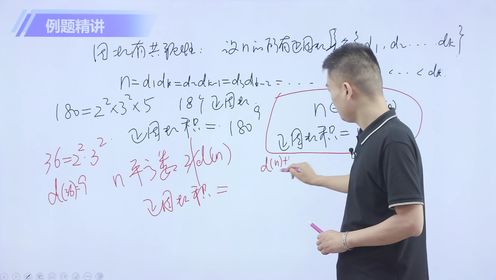 例题精讲
因数有共轭性: 设n的所有正因数 {d₁, d₂ … dₖ}
n = d₁dₖ = d₂dₖ₋₁ = d₃dₖ₋₂ = …… < dₖ
180 = 2² × 3² × 5 18个正因数
正因数积 = 180⁹
n
正因数积 =
36 = 2² · 3²
d(36) = 9
n平方数 2∤d(n)
正因数积 =
d(n)+